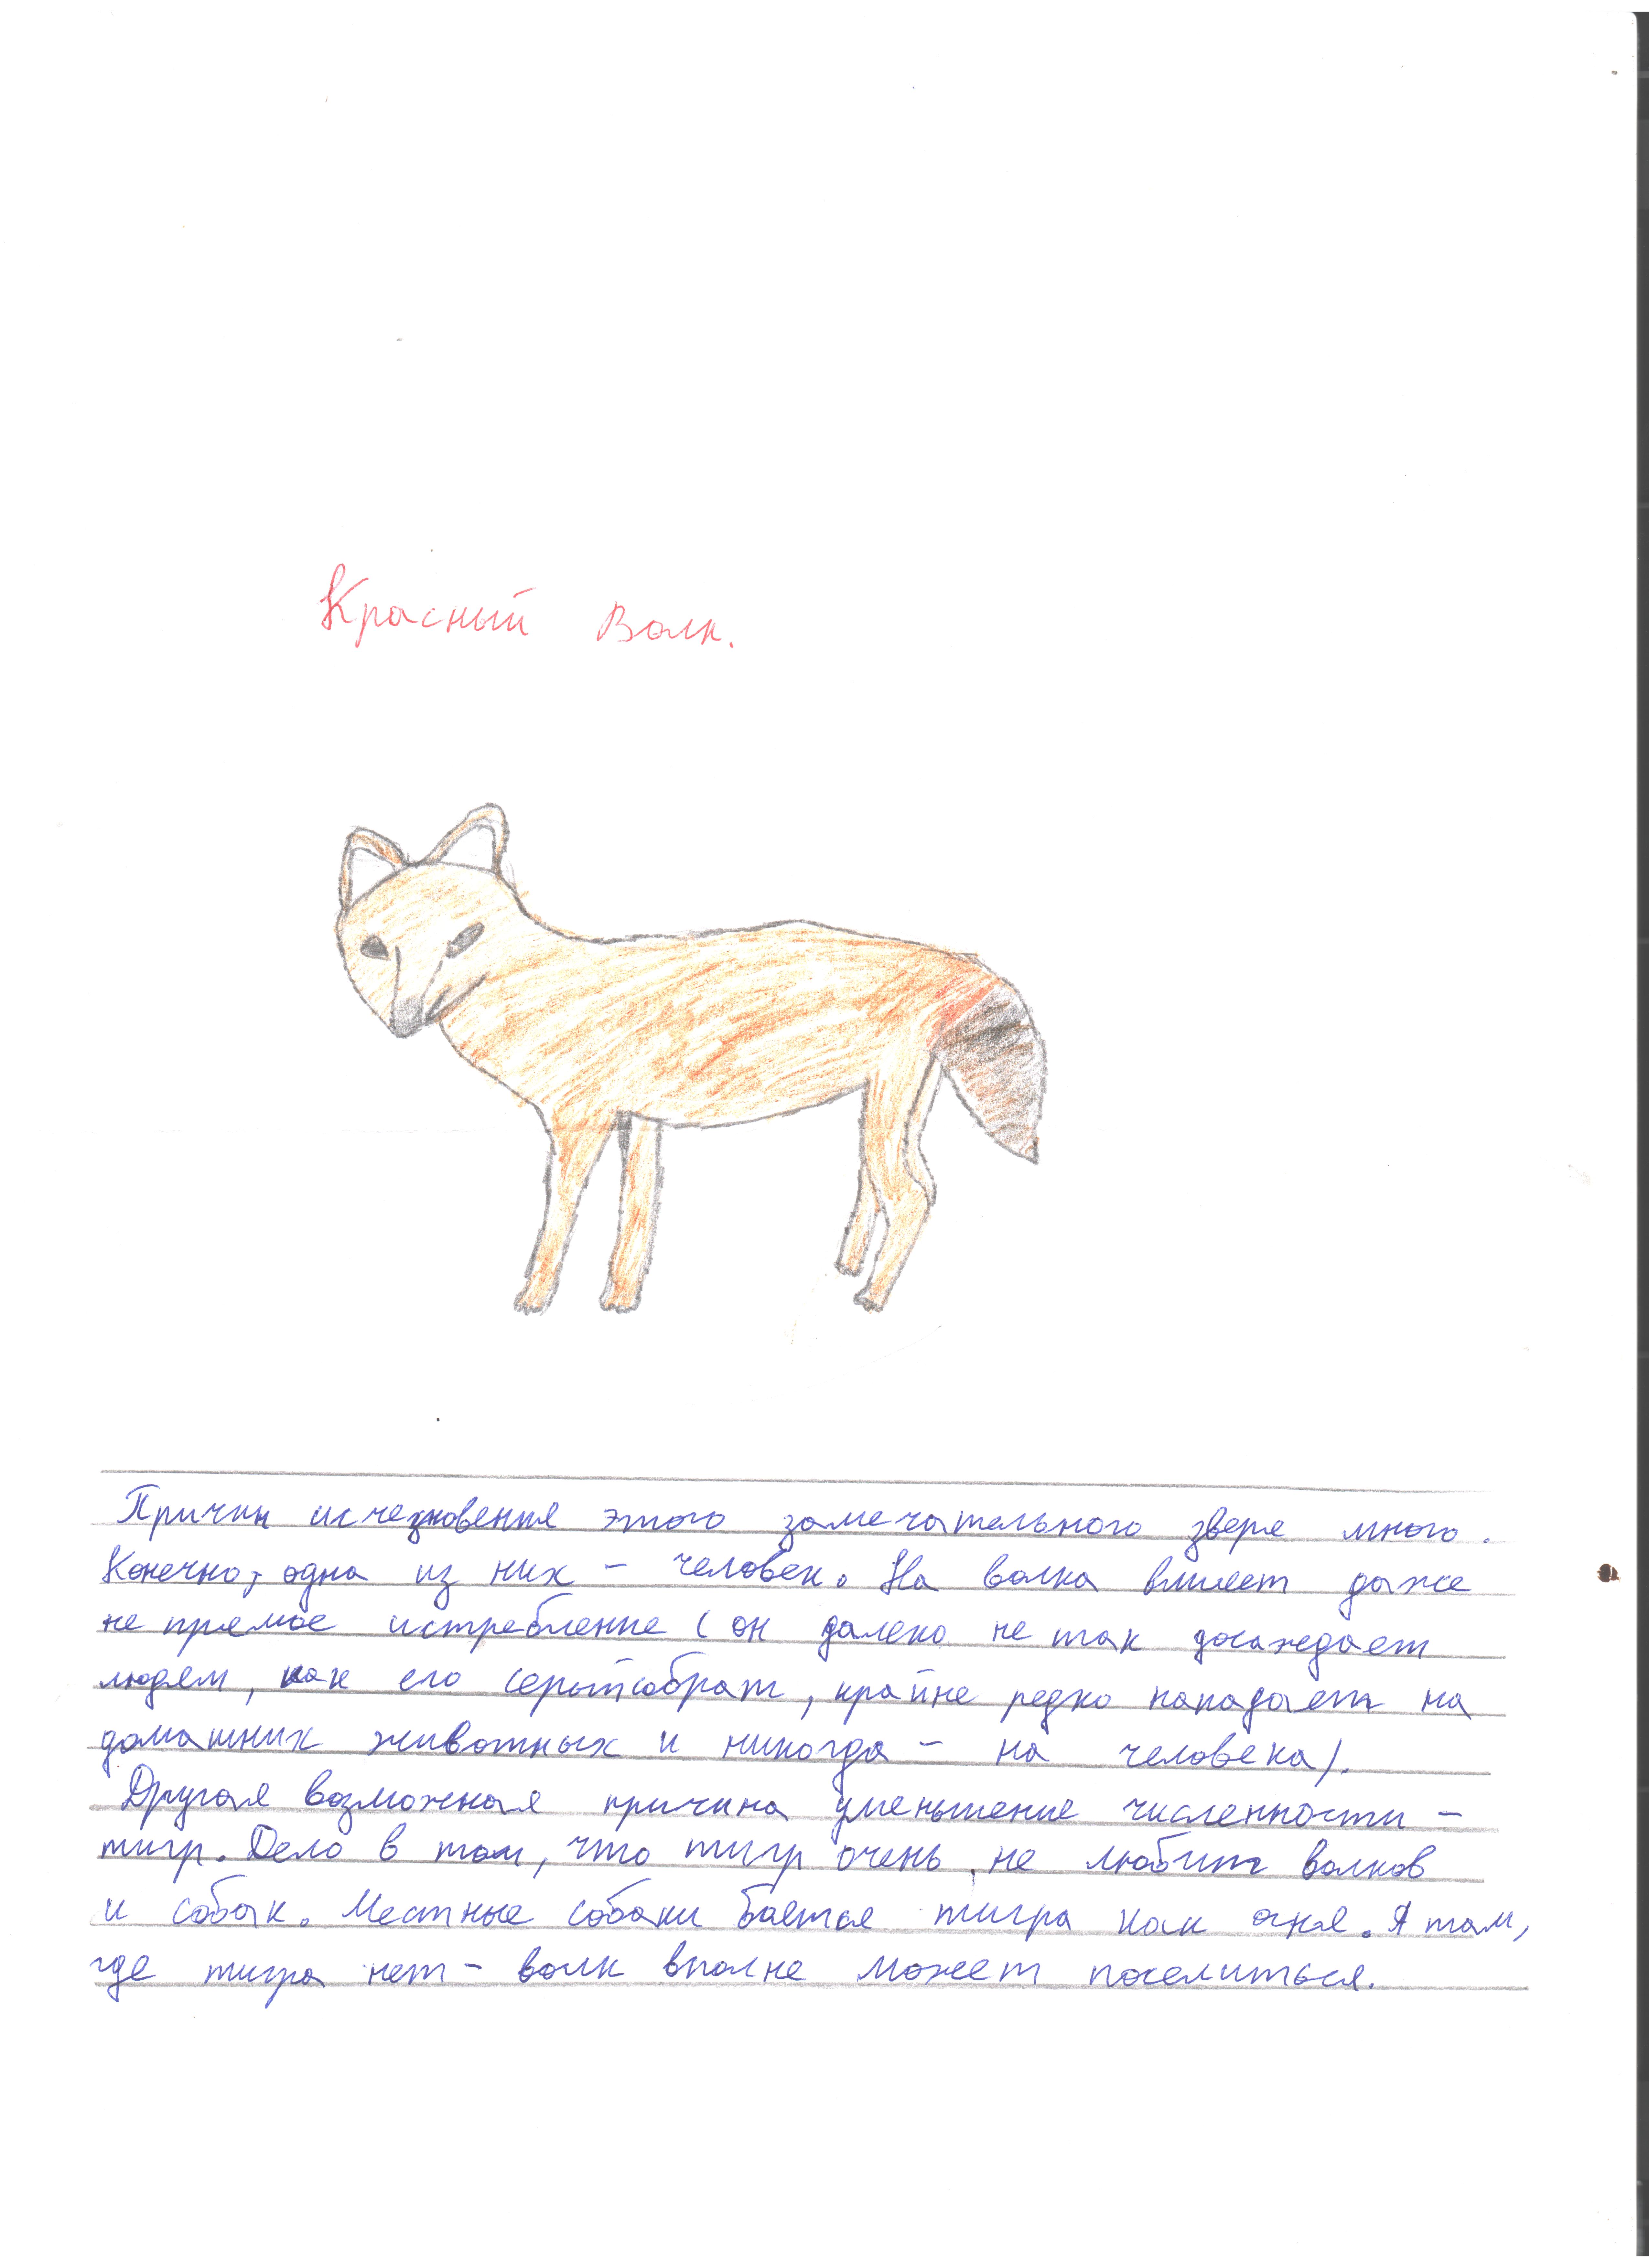 Красный Волк.
Причин исчезновения этого замечательного зверя много.
Конечно, одна из них – человек. На волка влияет даже
не прямое истребление (он далеко не так досаждает
людям, как его серый собрат, крайне редко нападает на
домашних животных и никогда – на человека).
Другая возможная причина уменьшение численности –
тигр. Дело в том, что тигр очень не любит волков
и собак. Местные собаки баятся тигра как огня. А там,
где тигра нет – волк вполне может поселиться.